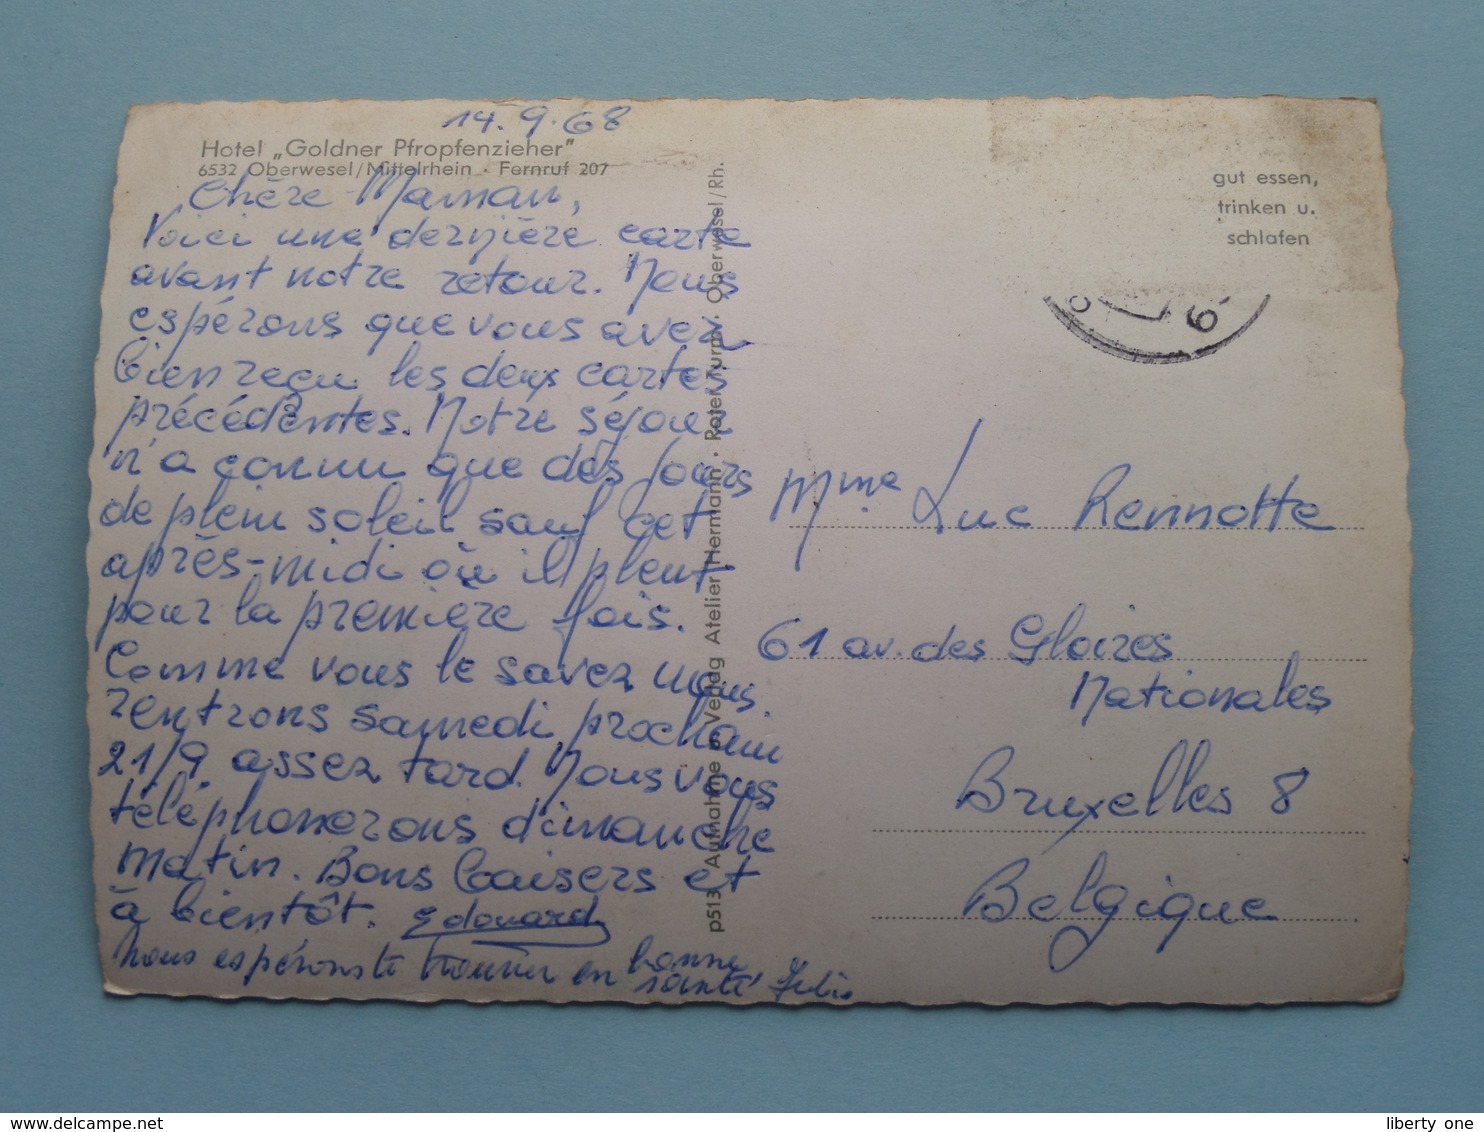 14.9.68
Hotel „Goldner Pfropfenzieher"
6532 Oberwesel/Mittelrhein · Fernruf 207
Chère Maman,
Voici une dernière carte
avant notre retour. Nous
espérons que vous avez
bien reçu les deux cartes
précédentes. Notre séjour
n'a connu que des jours
de plein soleil sauf cet
après-midi où il pleut
pour la première fois.
Comme vous le savez nous
rentrons samedi prochain
21/9 assez tard. Nous vous
téléphonerons dimanche
matin. Bons baisers et
à bientôt. Edouard
Nous espérons te trouver en bonne
santé
p513 Aufnahme u. Verlag Atelier Hermann · Roter Turm · Oberwesel/Rh.
gut essen,
trinken u.
schlafen
Mme Luc Rennotte
61 av. des Gloires
Nationales
Bruxelles 8
Belgique
delcampe.net
liberty one